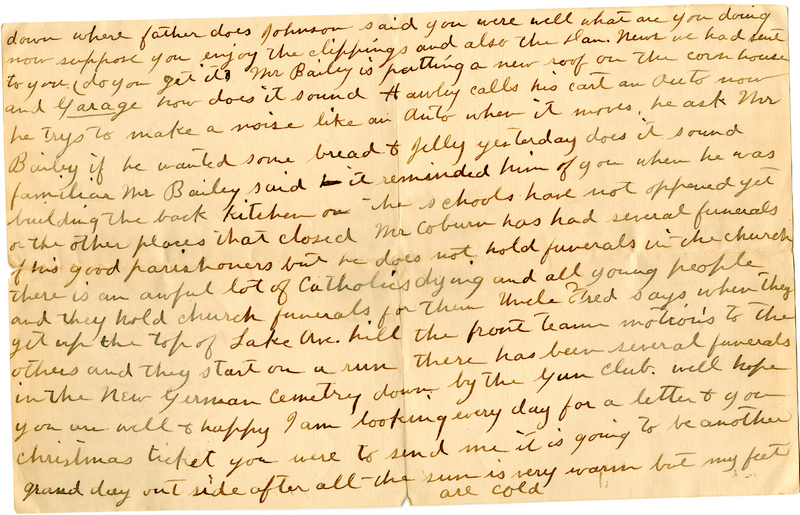 down where father does Johnson said you were well what are you doing
now suppose you enjoy the clippings and also the Dan. News we had sent
to you. (do you get it? Mr Bailey is putting a new roof on the corn house
and Garage how does it sound Hawley calls his cart an Auto now
he trys to make a noise like an Auto when it moves. he ask Mr
Bailey if he wanted some bread & jelly yesterday does it sound
familiar Mr Bailey said it reminded him of you when he was
building the back kitchen on the schools have not oppened yet
or the other places that closed Mr Coburn has had several funerals
of his good parishoners but he does not hold funerals in the church
there is an awful lot of Catholics dying and all young people
and they hold church funerals for them Uncle Fred says when they
get up the top of Lake Ave. hill the front team motions to the
others and they start on a run there has been several funerals
in the New German Cemetry down by the Gun Club. will hope
you are well & happy I am looking every day for a letter & you
christmas ticket you were to send me it is going to be another
grand day out side after all the sun is very warm but my feet
are cold